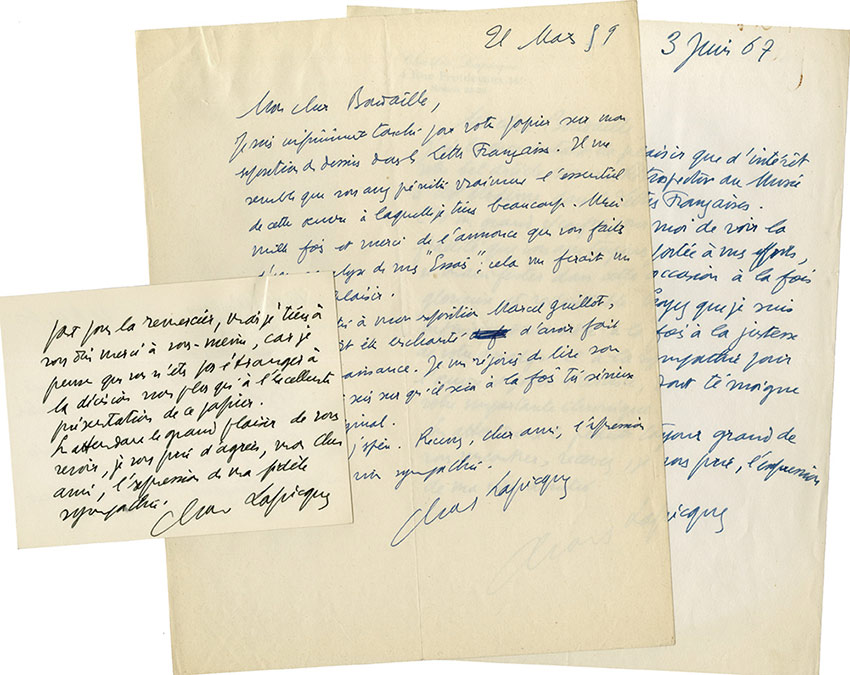 21 Mars 59
Mon cher Boudaille,
Je suis infiniment touché par votre papier sur mon
exposition de dessins dans les Lettres Françaises. Il me
semble que vous avez pénétré vraiment l'essentiel
de cette œuvre à laquelle je tiens beaucoup. Merci
mille fois et merci de l'annonce que vous faites
de mes "Essais", cela me ferait un
plaisir.
à mon exposition Marcel Guillot,
été enchanté d'avoir fait
naissance. Je me réjouis de lire son
suis sûr qu'il sera à la fois très sérieux
original.
Recevez, cher ami, l'expression
sympathie.
Charles Lapicque
3 Juin 67
plaisir que d'intérêt
rétrospective au Musée
Lettres Françaises.
moi de voir la
portée à mes efforts,
occasion à la fois
Croyez que je suis
fois à la justesse
sympathie pour
témoigne
toujours grand de
vous prie, l'expression
Lapicque
part pour la remercier, mais je tiens à
vous dire merci à vous-même, car je
pense que vous n'êtes pas étranger à
la décision non plus qu'à l'excellente
présentation de ce papier.
En attendant le grand plaisir de vous
revoir, je vous prie d'agréer, mon cher
ami, l'expression de ma fidèle
sympathie.
Charles Lapicque